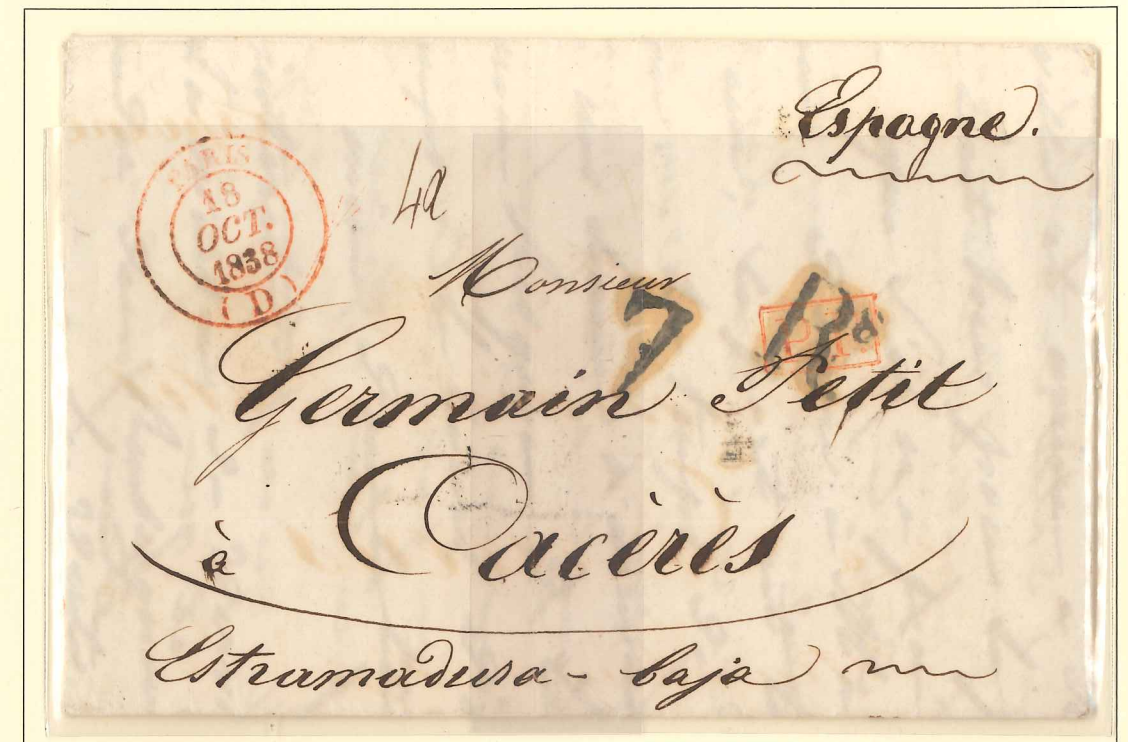 Espagne.
PARIS
18
OCT.
1838
(D)
Monsieur
7 Rs
Germain Petit
à Cacèrès
Estramadura - baja